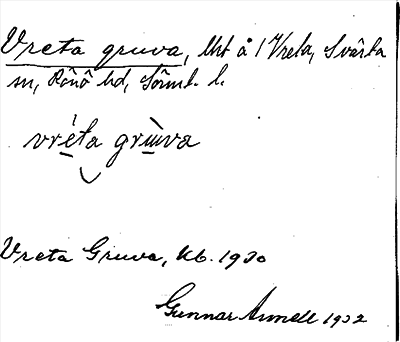 Vreta gruva, lht å 1 Vreta, Svärta
sn, Rönö hd, Sörml. l.
vréta grùva
Vreta Gruva, Kb. 1930
Gunnar Annell 1932